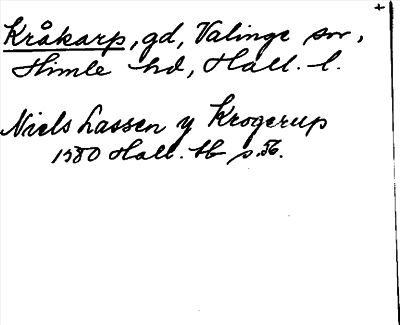 +
Kråkarp, gd, Valinge sn,
Himle hd, Hall. l.
Niels Lassen y Krogerup
1580 Hall. tb s. 56.